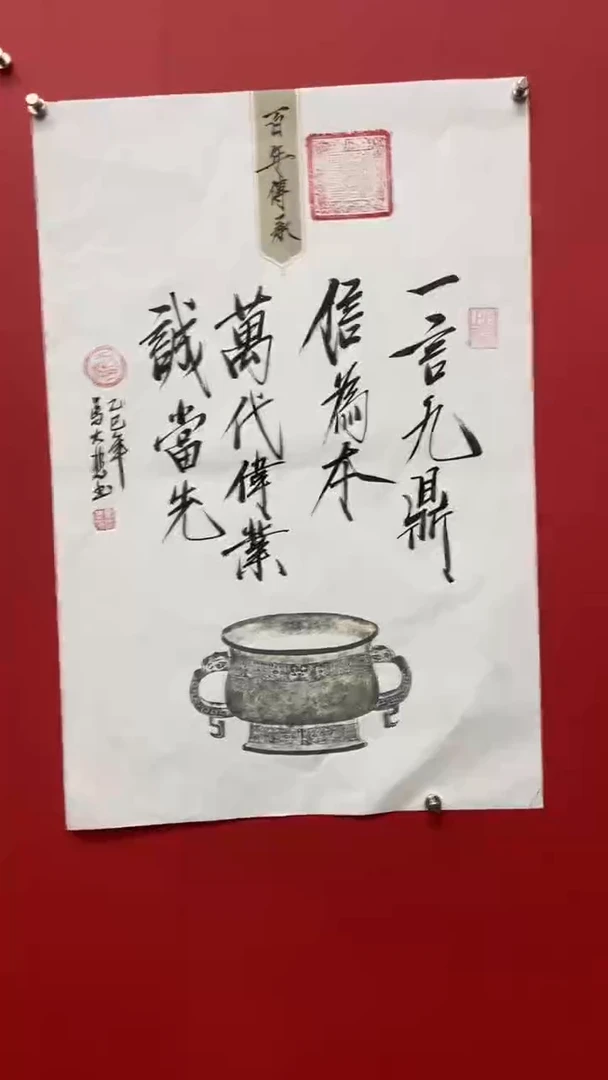 百年傳承
一言九鼎
信為本
萬代偉業
誠當先
乙巳年
馬大悲书